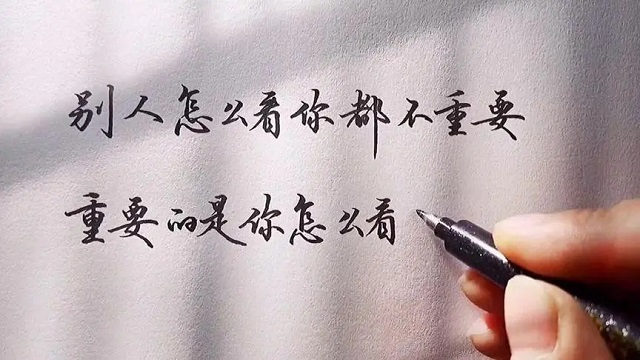 别人怎么看你都不重要
重要的是你怎么看